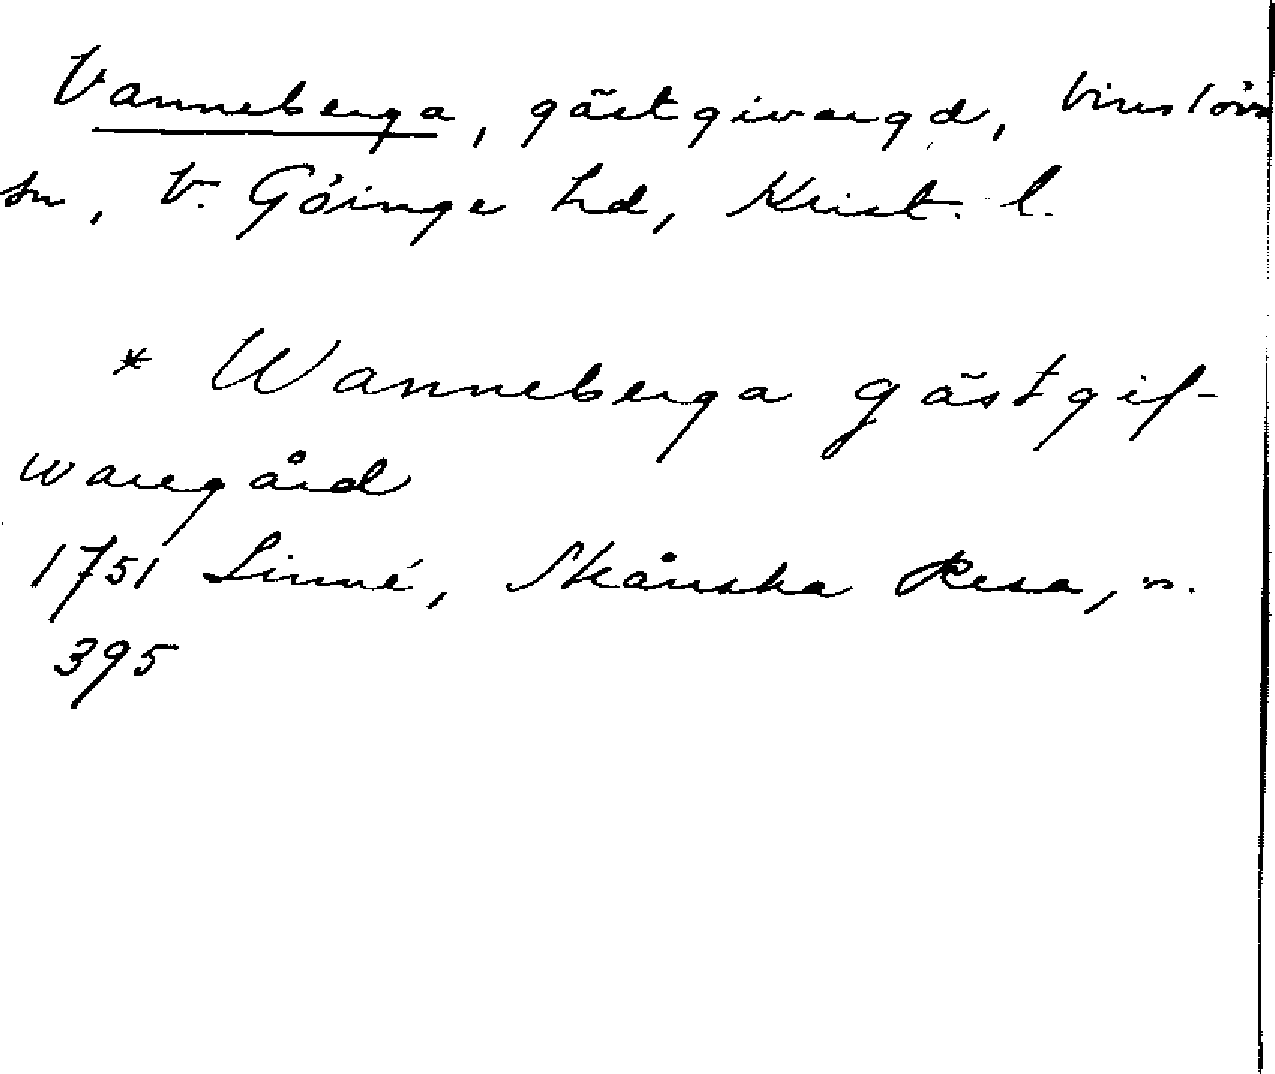 Vanneberga, gästgivargd, Vinslövs
sn, V. Göinge hd, Krist. l.
* Wanneberga gästgif-
waregård
1751 Linné, Skånska Resa, s.
395